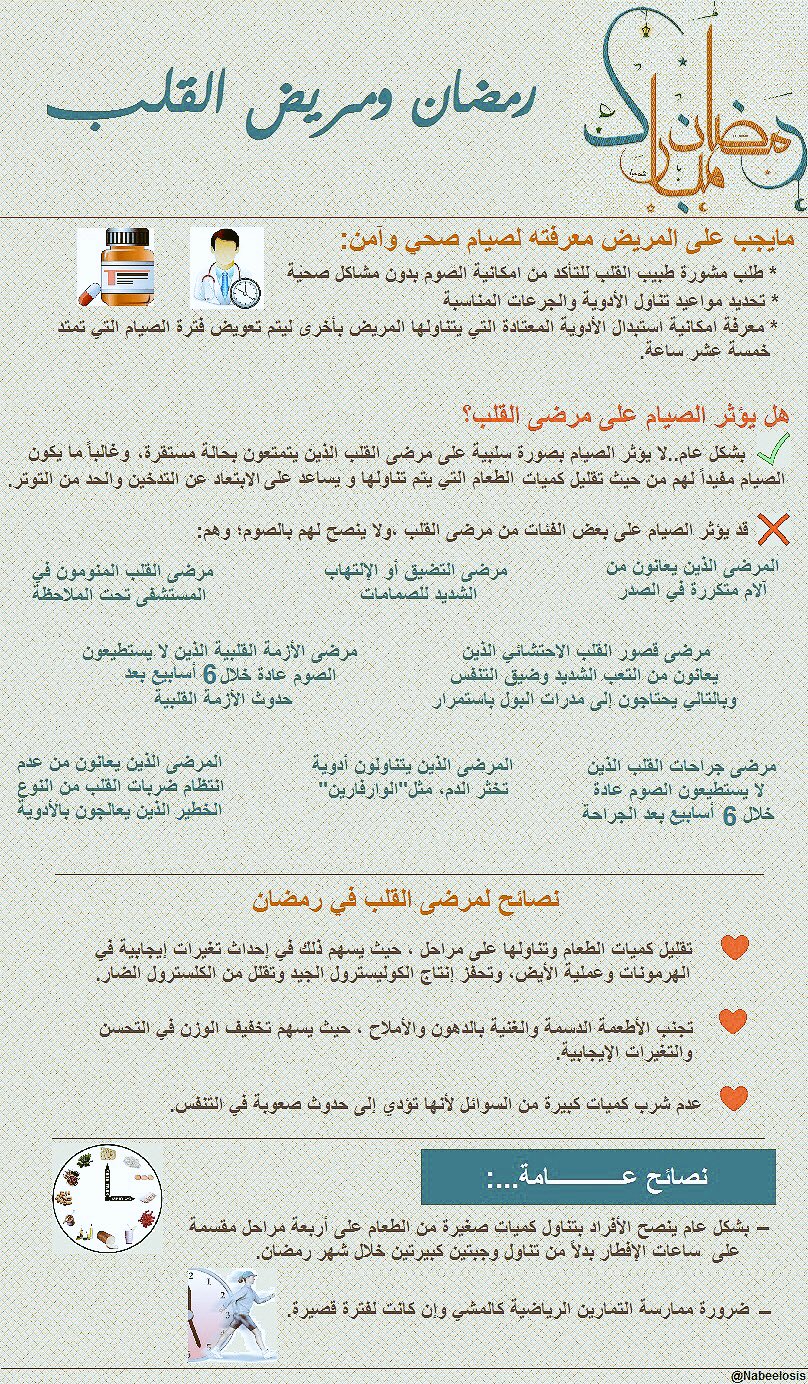 رمضان مبارك
رمضان ومريض القلب
مايجب على المريض معرفته لصيام صحي وآمن:
* طلب مشورة طبيب القلب للتأكد من امكانية الصوم بدون مشاكل صحية
* تحديد مواعيد تناول الأدوية والجرعات المناسبة
* معرفة امكانية استبدال الأدوية المعتادة التي يتناولها المريض بأخرى ليتم تعويض فترة الصيام التي تمتد
خمسة عشر ساعة.
هل يؤثر الصيام على مرضى القلب؟
بشكل عام..لا يؤثر الصيام بصورة سلبية على مرضى القلب الذين يتمتعون بحالة مستقرة، وغالباً ما يكون
الصيام مفيداً لهم من حيث تقليل كميات الطعام التي يتم تناولها و يساعد على الابتعاد عن التدخين والحد من التوتر.
قد يؤثر الصيام على بعض الفئات من مرضى القلب ،ولا ينصح لهم بالصوم؛ وهم:
المرضى الذين يعانون من
آلام متكررة في الصدر
مرضى التضيق أو الإلتهاب
الشديد للصمامات
مرضى القلب المنومون في
المستشفى تحت الملاحظة
مرضى قصور القلب الاحتشائي الذين
يعانون من التعب الشديد وضيق التنفس
وبالتالي يحتاجون إلى مدرات البول باستمرار
مرضى الأزمة القلبية الذين لا يستطيعون
الصوم عادة خلال 6 أسابيع بعد
حدوث الأزمة القلبية
مرضى جراحات القلب الذين
لا يستطيعون الصوم عادة
خلال 6 أسابيع بعد الجراحة
المرضى الذين يتناولون أدوية
تخثر الدم، مثل"الوارفارين"
المرضى الذين يعانون من عدم
انتظام ضربات القلب من النوع
الخطير الذين يعالجون بالأدوية
نصائح لمرضى القلب في رمضان
تقليل كميات الطعام وتناولها على مراحل ، حيث يسهم ذلك في إحداث تغيرات إيجابية في
الهرمونات وعملية الأيض، وتحفز إنتاج الكوليسترول الجيد وتقلل من الكلسترول الضار.
تجنب الأطعمة الدسمة والغنية بالدهون والأملاح ، حيث يسهم تخفيف الوزن في التحسن
والتغيرات الإيجابية.
عدم شرب كميات كبيرة من السوائل لأنها تؤدي إلى حدوث صعوبة في التنفس.
نصائح عـــــــــامة...:
– بشكل عام ينصح الأفراد بتناول كميات صغيرة من الطعام على أربعة مراحل مقسمة
على ساعات الإفطار بدلاً من تناول وجبتين كبيرتين خلال شهر رمضان.
– ضرورة ممارسة التمارين الرياضية كالمشي وإن كانت لفترة قصيرة.
@Nabeelosis